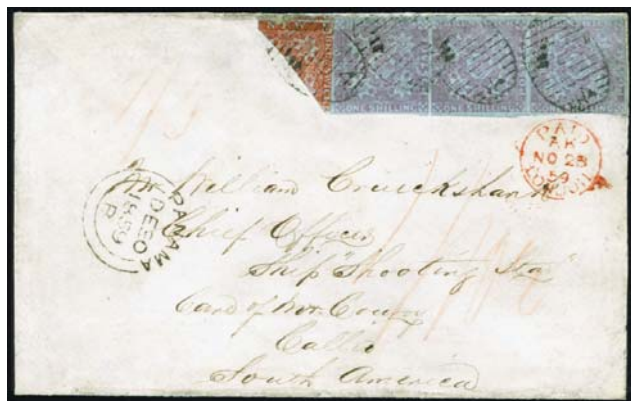 ONE SHILLING ONE SHILLING ONE SHILLING
PAID
AK
NO 28
59
LONDON
PANAMA
DE 30
1859
Mr William Cruickshank
Chief Officer
Ship "Shooting Star"
Care of
Callao
South America